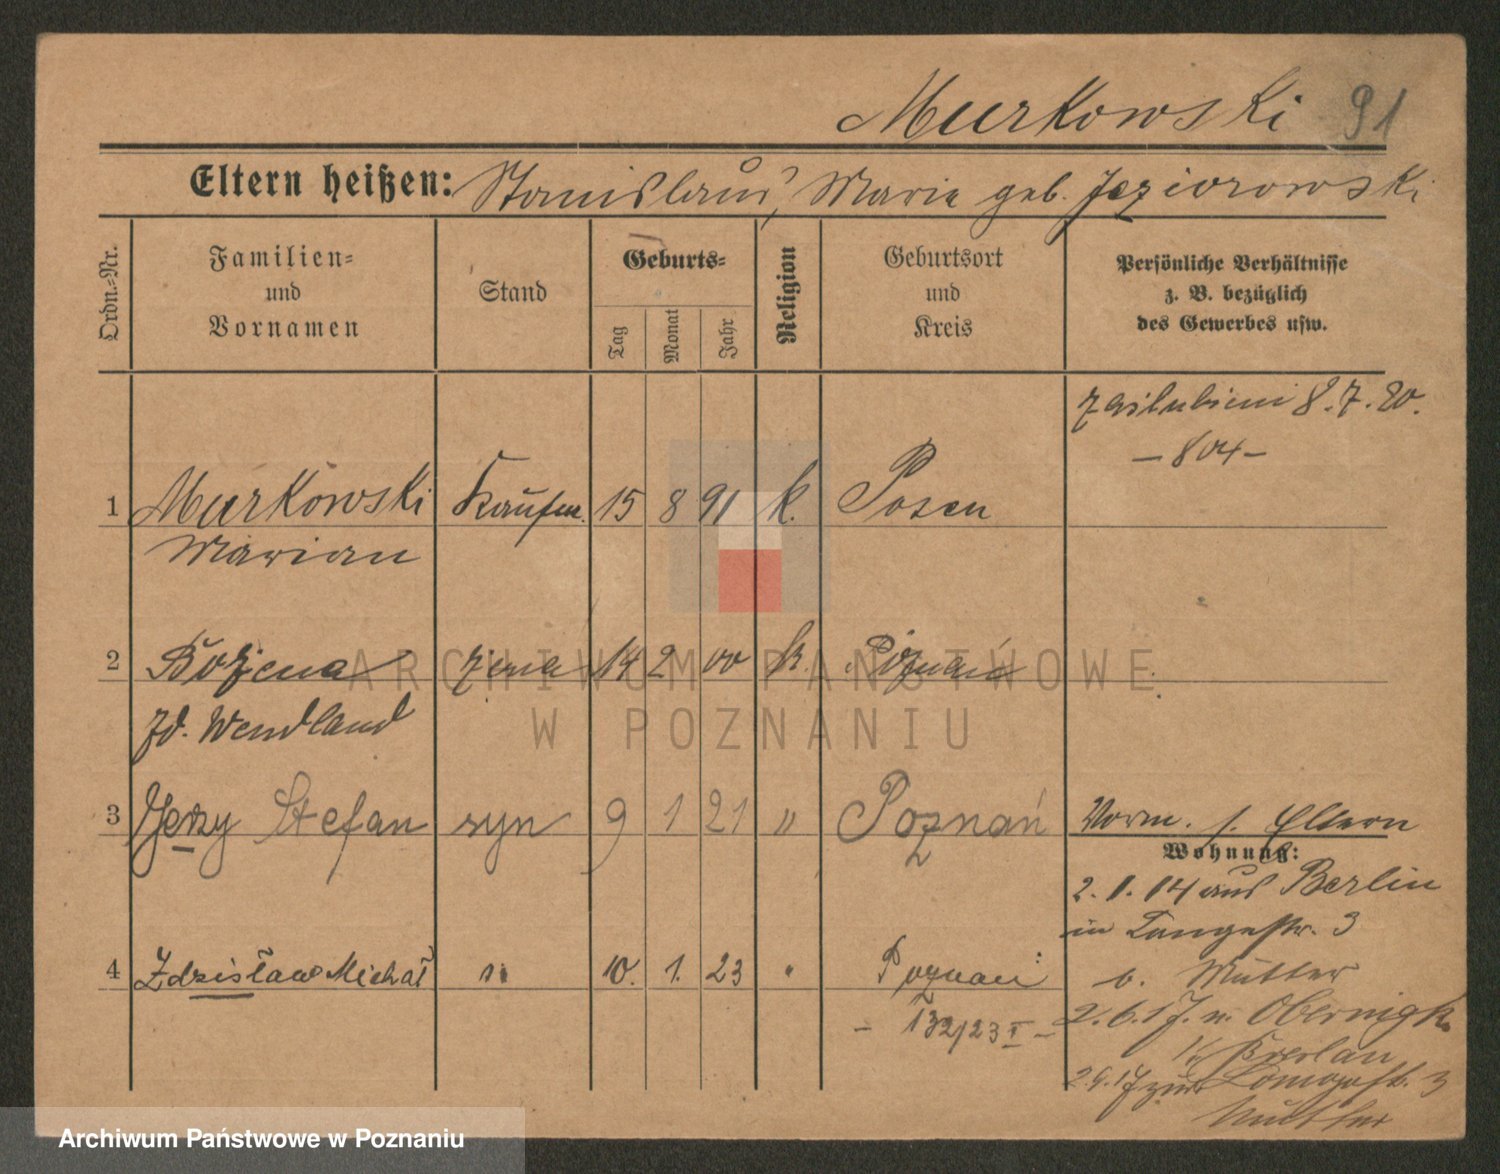 Murkowski 91
Eltern heißen: Stanislaus, Marie geb. Jeziorowski
Ordn.-Nr.
Familien-
und
Vornamen
Stand
Geburts-
Tag
Monat
Jahr
Religion
Geburtsort
und
Kreis
Persönliche Verhältnisse
z. B. bezüglich
des Gewerbes usw.
zaślubieni 8.7.20.
- 804 -
1 Murkowski Kaufm. 15 8 91 k. Posen
Marian
2 Bożena żona 14 2 00 k. Poznań
zd. Wendland
3 Jerzy Stefan syn 9 1 21 " Poznań
Vorm. s. Eltern
Wohnung:
2.1.14 aus Berlin
in Langestr. 3
b. Mutter
4 Zdzisław Michał " 10. 1. 23 " Poznań
- 132/23 I -
2.6.17. n. Obernigk
Breslau
2.9.17 zur 3
Mutter
ARCHIWUM PAŃSTWOWE
W POZNANIU
Archiwum Państwowe w Poznaniu